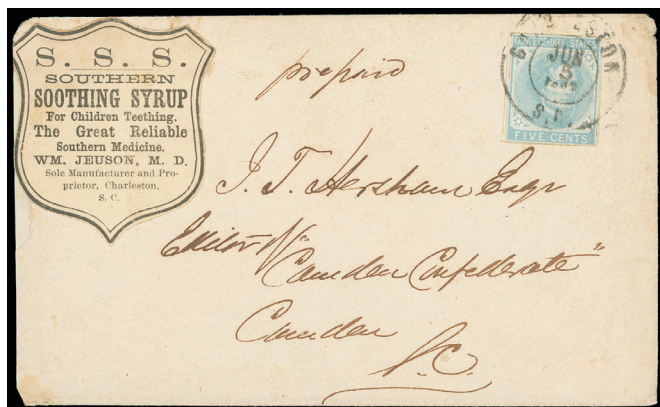 S. S. S.
SOUTHERN
SOOTHING SYRUP
For Children Teething.
The Great Reliable
Southern Medicine.
WM. JEUSON, M. D.
Sole Manufacturer and Pro-
prietor, Charleston.
S. C.
prepaid
JUN
5
S. C.
FIVE CENTS
J. T. Hersham Esqr
Editor "Camden Confederate"
Camden
S.C.